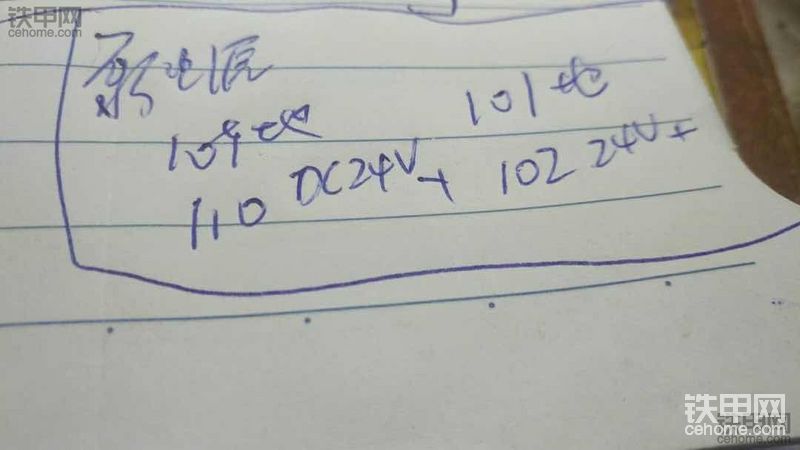 铁甲网
cehome.com
电
109地 101地
110 DC24V+ 102 24V+
铁甲网
cehome.com